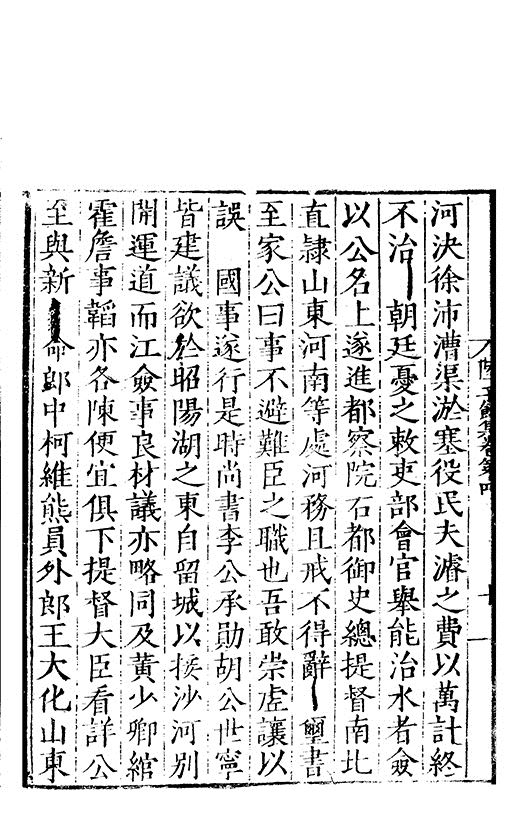 河決徐沛漕渠淤塞役民夫濬之費以萬計終
不治 朝廷憂之敕吏部會官舉能治水者僉
以公名上遂進都察院右都御史總提督南北
直隷山東河南等處河務且戒不得辭 璽書
至家公曰事不避難臣之職也吾敢崇虛讓以
誤 國事遂行是時尚書李公承勛胡公世寧
皆建議欲於昭陽湖之東自留城以接沙河別
開運道而江僉事良材議亦略同及黃少卿綰
霍詹事韜亦各陳便宜俱下提督大臣看詳公
至與新 命郎中柯維熊員外郎王大化山東